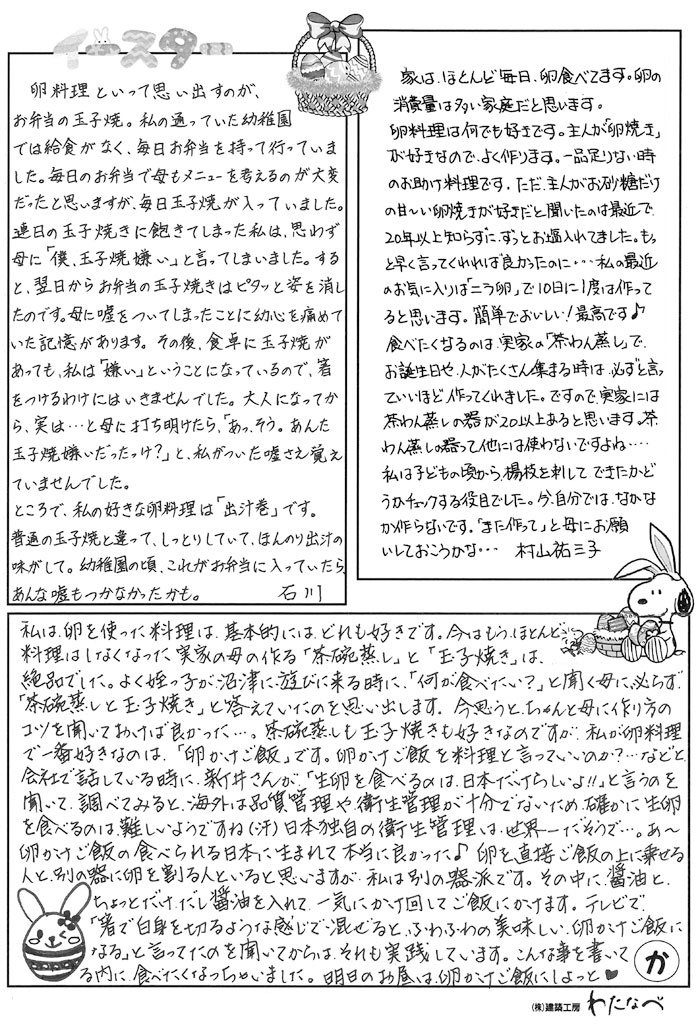 イースター
卵料理といって思い出すのが、
お弁当の玉子焼。私の通っていた幼稚園
では給食がなく、毎日お弁当を持って行っていま
した。毎日のお弁当で母もメニューを考えるのが大変
だったと思いますが、毎日玉子焼が入っていました。
連日の玉子焼きに飽きてしまった私は、思わず
母に「僕、玉子焼嫌い」と言ってしまいました。する
と、翌日からお弁当の玉子焼きはピタッと姿を消し
たのです。母に嘘をついてしまったことに幼心を痛めて
いた記憶があります。その後、食卓に玉子焼が
あっても、私は「嫌い」ということになっているので、箸
をつけるわけにはいきませんでした。大人になってか
ら、実は…と母に打ち明けたら、「あっ、そう。あんた
玉子焼嫌いだったっけ？」と、私がついた嘘さえ覚え
ていませんでした。
ところで、私の好きな卵料理は「出汁巻」です。
普通の玉子焼と違って、しっとりしていて、ほんのり出汁の
味がして。幼稚園の頃、これがお弁当に入っていたら、
あんな嘘もつかなかったかも。　石川
家は、ほとんど毎日、卵食べてます。卵の
消費量は多い家庭だと思います。
卵料理は何でも好きです。主人が「卵焼き」
が好きなので、よく作ります。一品足りない時
のお助け料理です。ただ、主人がお砂糖だけ
の甘～い卵焼きが好きだと聞いたのは最近で、
20年以上知らずに、ずっとお塩入れてました。もっ
と早く言ってくれれば良かったのに・・・私の最近
のお気に入りは「ニラ卵」で10日に1度は作って
ると思います。簡単でおいしい！最高です♪
食べたくなるのは、実家の「茶わん蒸し」で、
お誕生日や、人がたくさん集まる時は、必ずと言っ
ていいほど作ってくれました。ですので、実家には
茶わん蒸しの器が20以上あると思います。茶
わん蒸しの器って他には使わないですよね・・・・
私は子どもの頃から、楊枝を刺して できたかど
うかチェックする役目でした。今、自分では、なかな
か作らないです。「また作って」と母にお願
いしておこうかな・・・　村山祐三子
私は、卵を使った料理は、基本的には、どれも好きです。今はもう、ほとんど
料理はしなくなった、実家の母の作る「茶碗蒸し」と「玉子焼き」は、
絶品でした。よく姪っ子が、沼津に遊びに来る時に、「何が食べたい？」と聞く母に、必らず、
「茶碗蒸しと玉子焼き」と答えていたのを思い出します。今思うと、ちゃんと母に作り方の
コツを聞いておけば良かった…。茶碗蒸しも玉子焼きも好きなのですが、私が卵料理
で一番好きなのは、「卵かけご飯」です。卵かけご飯を料理と言っていいのか？…などと、
会社で話している時に、新井さんが、「生卵を食べるのは、日本だけらしいよ!!」と言うのを
聞いて、調べてみると、海外は品質管理や、衛生管理が十分でないため、確かに生卵
を食べるのは、難しいようですね(汗)日本独自の衛生管理は、世界一だそうで…。あ～
卵かけご飯の食べられる日本に生まれて本当に良かった♪ 卵を直接ご飯の上に乗せる
人と、別の器に卵を割る人といると思いますが、私は別の器派です。その中に、醤油と、
ちょっとだけ、だし醤油を入れて、一気にかけ回してご飯にかけます。テレビで、
「箸で白身を切るような感じで混ぜると、ふわふわの美味しい卵かけご飯に
なる」と言ってたのを聞いてからは、それも実践しています。こんな事を書いて
る内に、食べたくなっちゃいました。明日のお昼は、卵かけご飯にしよっと♥
か
(株)建築工房 わたなべ